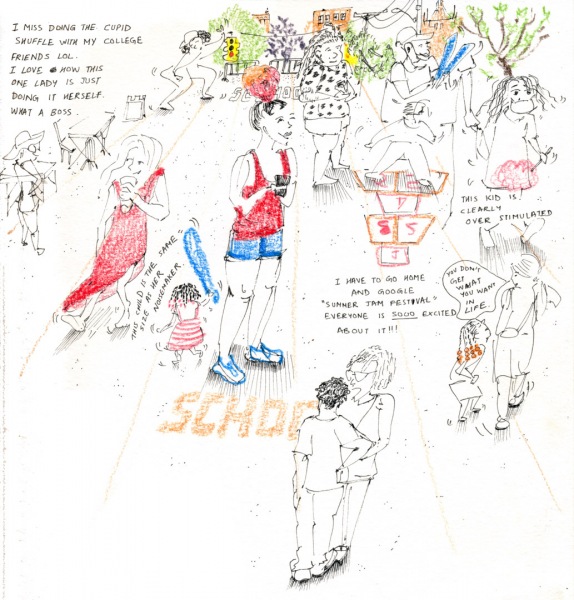 I MISS DOING THE CUPID
SHUFFLE WITH MY COLLEGE
FRIENDS LOL.
I LOVE HOW THIS
ONE LADY IS JUST
DOING IT HERSELF.
WHAT A BOSS.
SCHOOL
THIS KID IS
CLEARLY
OVER STIMULATED
THIS CHILD IS THE SAME
SIZE AS HER
NOISEMAKER
D
S S
J
I HAVE TO GO HOME
AND GOOGLE
"SUMNER JAM FESTIVAL"
EVERYONE IS SOOO EXCITED
ABOUT IT!!!
YOU DON'T
GET
WHAT
YOU WANT
IN
LIFE.
SCHOO